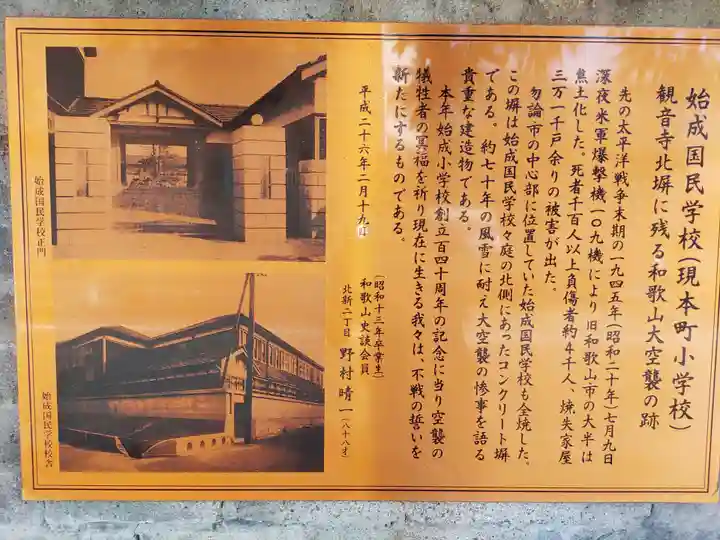 始成国民学校(現本町小学校)
観音寺北塀に残る和歌山大空襲の跡
先の太平洋戦争末期の一九四五年(昭和二十年)七月九日
深夜米軍爆撃機一〇九機により旧和歌山市の大半は
焦土化した。死者千百人以上負傷者約4千人、焼失家屋
三万一千戸余りの被害が出た。
勿論市の中心部に位置していた始成国民学校も全焼した。
この塀は始成国民学校々庭の北側にあったコンクリート塀
である。約七十年の風雪に耐え大空襲の惨事を語る
貴重な建造物である。
本年始成小学校創立百四十周年の記念に当り空襲の
犠牲者の冥福を祈り現在に生きる我々は、不戦の誓いを
新たにするものである。
平成二十六年二月十九日
(昭和十三年卒業生)
和歌山史談会員
北新二丁目 野村晴一(八十八才)
始成国民学校正門
始成国民学校校舎